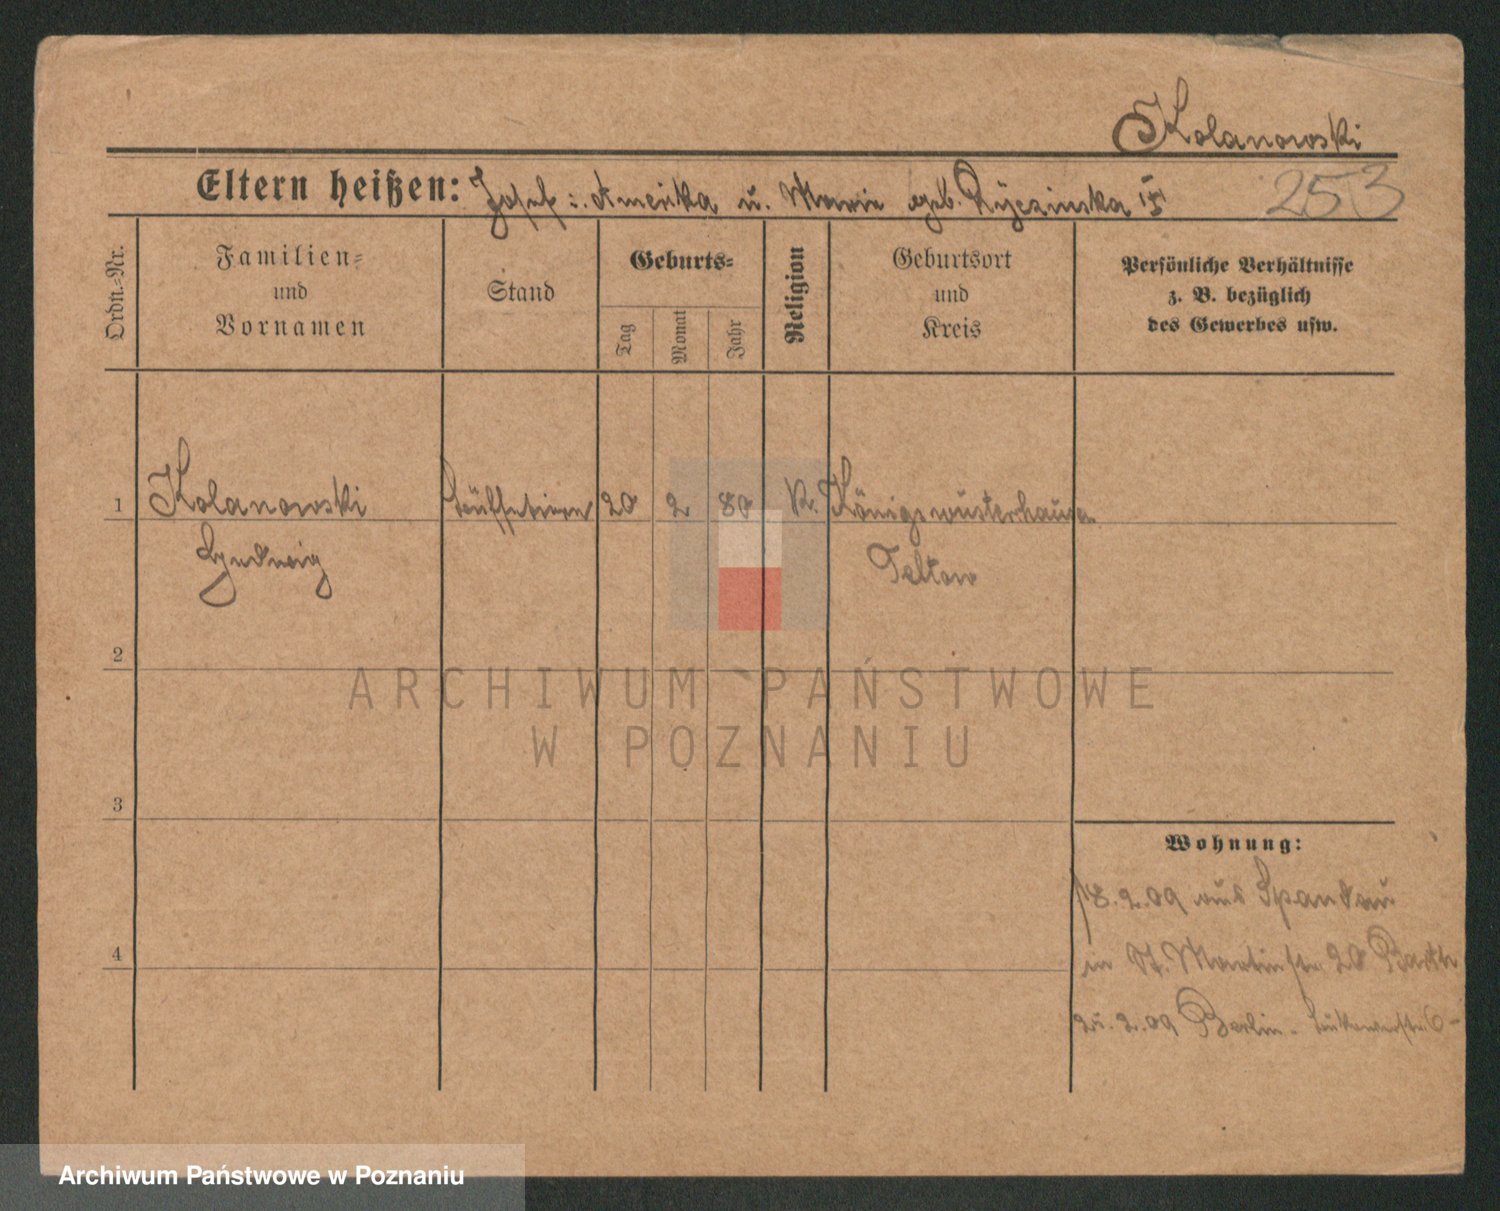 Kolanowski
Eltern heißen: Josef i. Amerika u. Marie geb. Ryczinska
253
Ordn.-Nr.
Familien-
und
Vornamen
Stand
Geburts-
Tag
Monat
Jahr
Religion
Geburtsort
und
Kreis
Persönliche Verhältnisse
z. B. bezüglich
des Gewerbes usw.
1 Kolanowski 20 2 80 K. Königswusterhausen
Ludwig Teltow
2
3
4
Wohnung:
18.2.09 aus Spandau
in St. Martinstr. 20
25.2.09 Berlin
ARCHIWUM PAŃSTWOWE
W POZNANIU
Archiwum Państwowe w Poznaniu